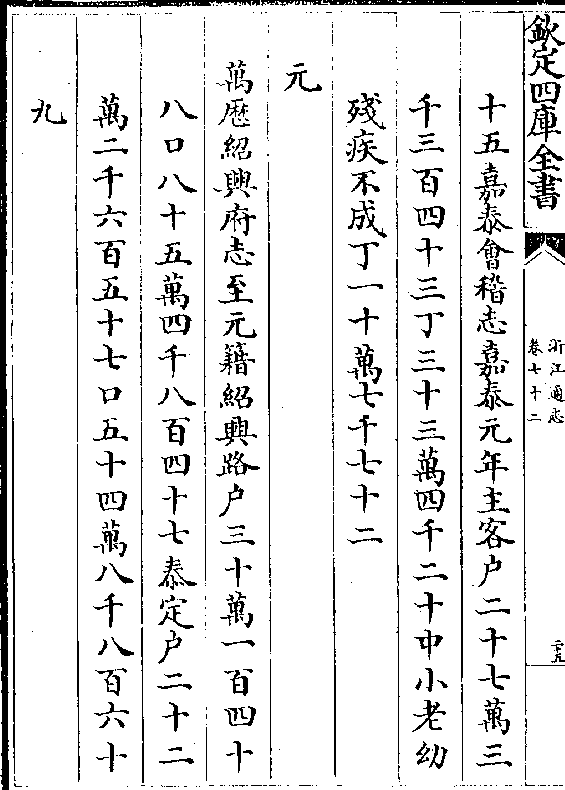 欽定四庫全書
浙江通志
卷七十二
二十五
十五嘉泰會稽志嘉泰元年主客户二十七萬三
千三百四十三丁三十三萬四千二十中小老幼
殘疾不成丁一十萬七千七十二
元
萬厯紹興府志至元籍紹興路户三十萬一百四十
八口八十五萬四千八百四十七泰定户二十二
萬二千六百五十七口五十四萬八千八百六十
九